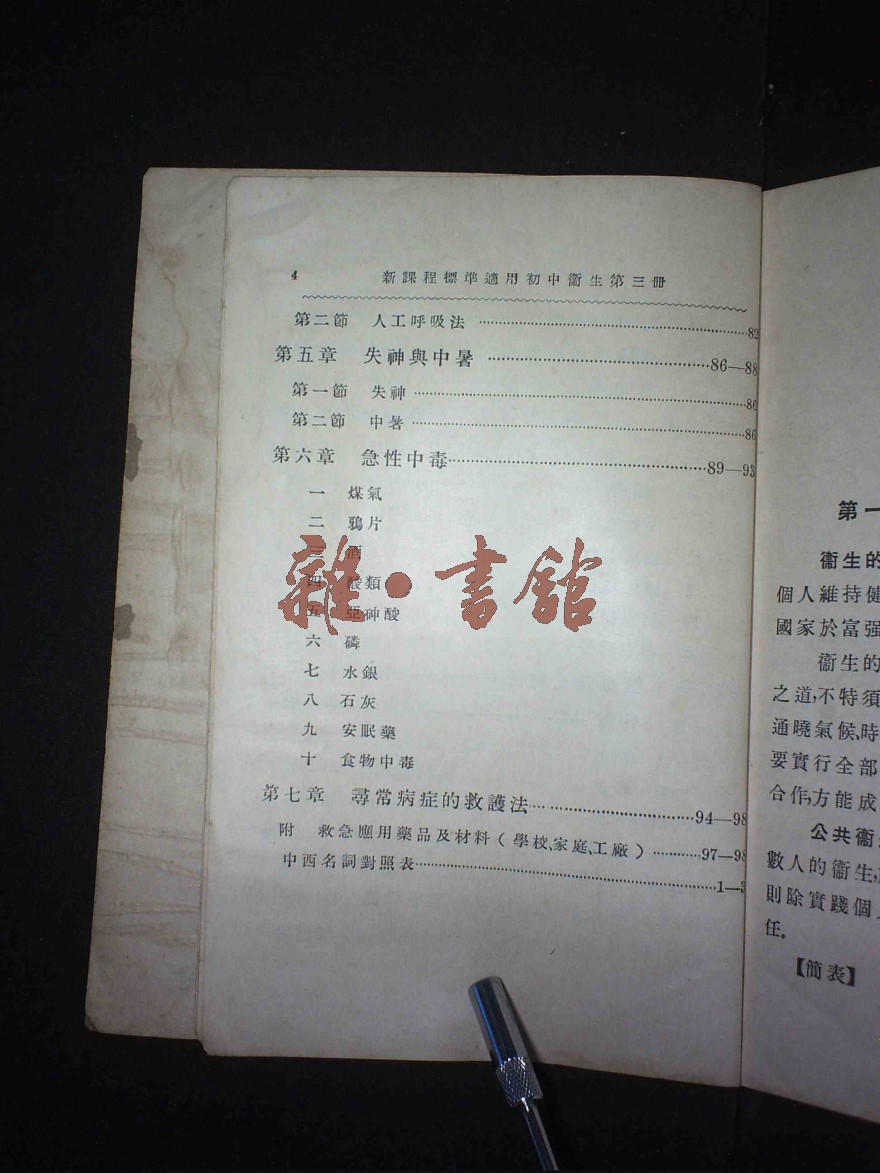 4 新課程標準適用初中衞生第三冊
第二節 人工呼吸法 ……82
第五章 失神與中暑 ……86—88
第一節 失神 ……86
第二節 中暑 ……86
第六章 急性中毒……89—93
一 煤氣
二 鴉片
三 酒
四 酸類
五 亞砷酸
六 磷
七 水銀
八 石灰
九 安眠藥
十 食物中毒
第七章 尋常病症的救護法……94—98
附 救急應用藥品及材料(學校、家庭、工廠)……97—98
中西名詞對照表……1—3
雜·書館
第一
衞生的
個人維持健
國家於富强
衞生的
之道,不特須
通曉氣候、時
要實行全部
合作,方能成
公共衞
數人的衞生,
則除實踐個
任。
【簡表】